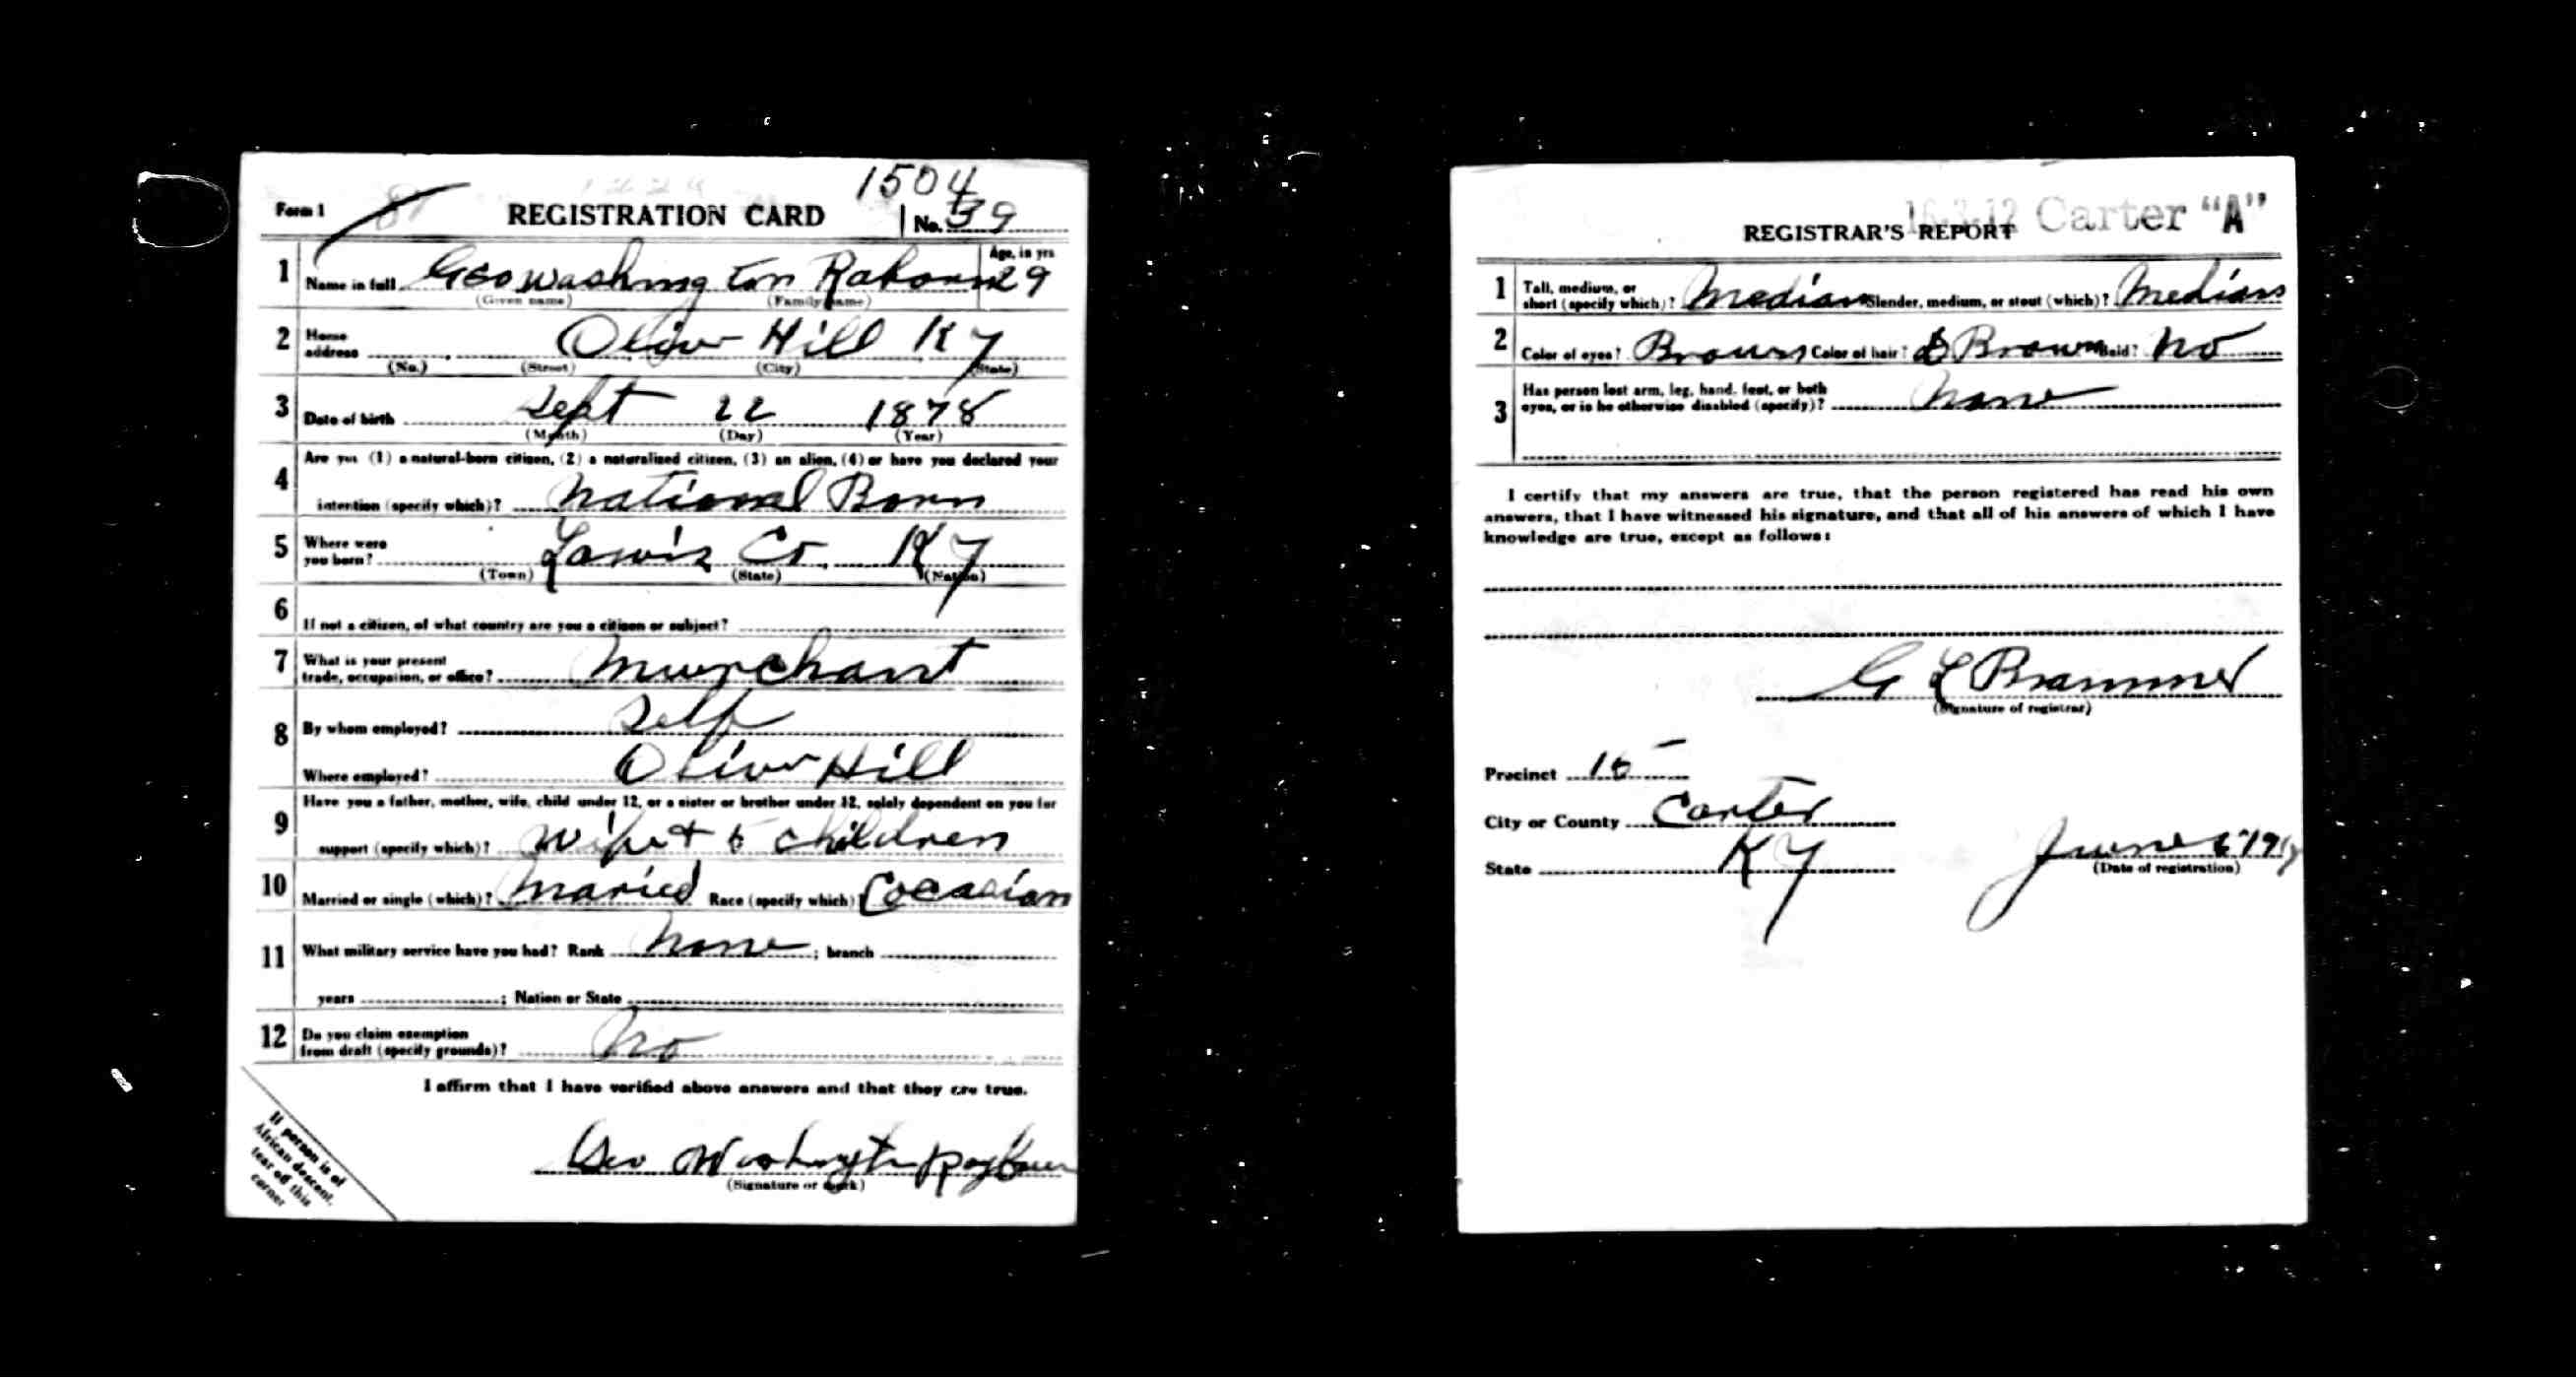 1504
Form 1 REGISTRATION CARD No. 39
1 Name in full Geo Washington Raborn Age, in yrs 29
(Given name) (Family name)
2 Home address Olive Hill Ky
(No.) (Street) (City) (State)
3 Date of birth Sept 22 1878
(Month) (Day) (Year)
4 Are you (1) a natural-born citizen, (2) a naturalized citizen, (3) an alien, (4) or have you declared your
intention (specify which)? National Born
5 Where were you born? Lewis Co. Ky
(Town) (State) (Nation)
6 If not a citizen, of what country are you a citizen or subject?
7 What is your present trade, occupation, or office? Murchant
8 By whom employed? Self
Where employed? Olive Hill
9 Have you a father, mother, wife, child under 12, or a sister or brother under 12, solely dependent on you for
support (specify which)? Wife & 5 children
10 Married or single (which)? Maried Race (specify which)? Cocasian
11 What military service have you had? Rank None ; branch
years ; Nation or State
12 Do you claim exemption from draft (specify grounds)? No
I affirm that I have verified above answers and that they are true.
Geo Washington Rayburn
(Signature or mark)
If person is of
African descent,
tear off this
corner
16-3-12 Carter "A"
REGISTRAR'S REPORT
1 Tall, medium, or short (specify which)? Median Slender, medium, or stout (which)? Median
2 Color of eyes? Brown Color of hair? D Brown Bald? No
3 Has person lost arm, leg, hand, foot, or both
eyes, or is he otherwise disabled (specify)? None
I certify that my answers are true, that the person registered has read his own
answers, that I have witnessed his signature, and that all of his answers of which I have
knowledge are true, except as follows:
G L Brammer
(Signature of registrar)
Precinct 16
City or County Carter
State Ky
June 5 1917
(Date of registration)